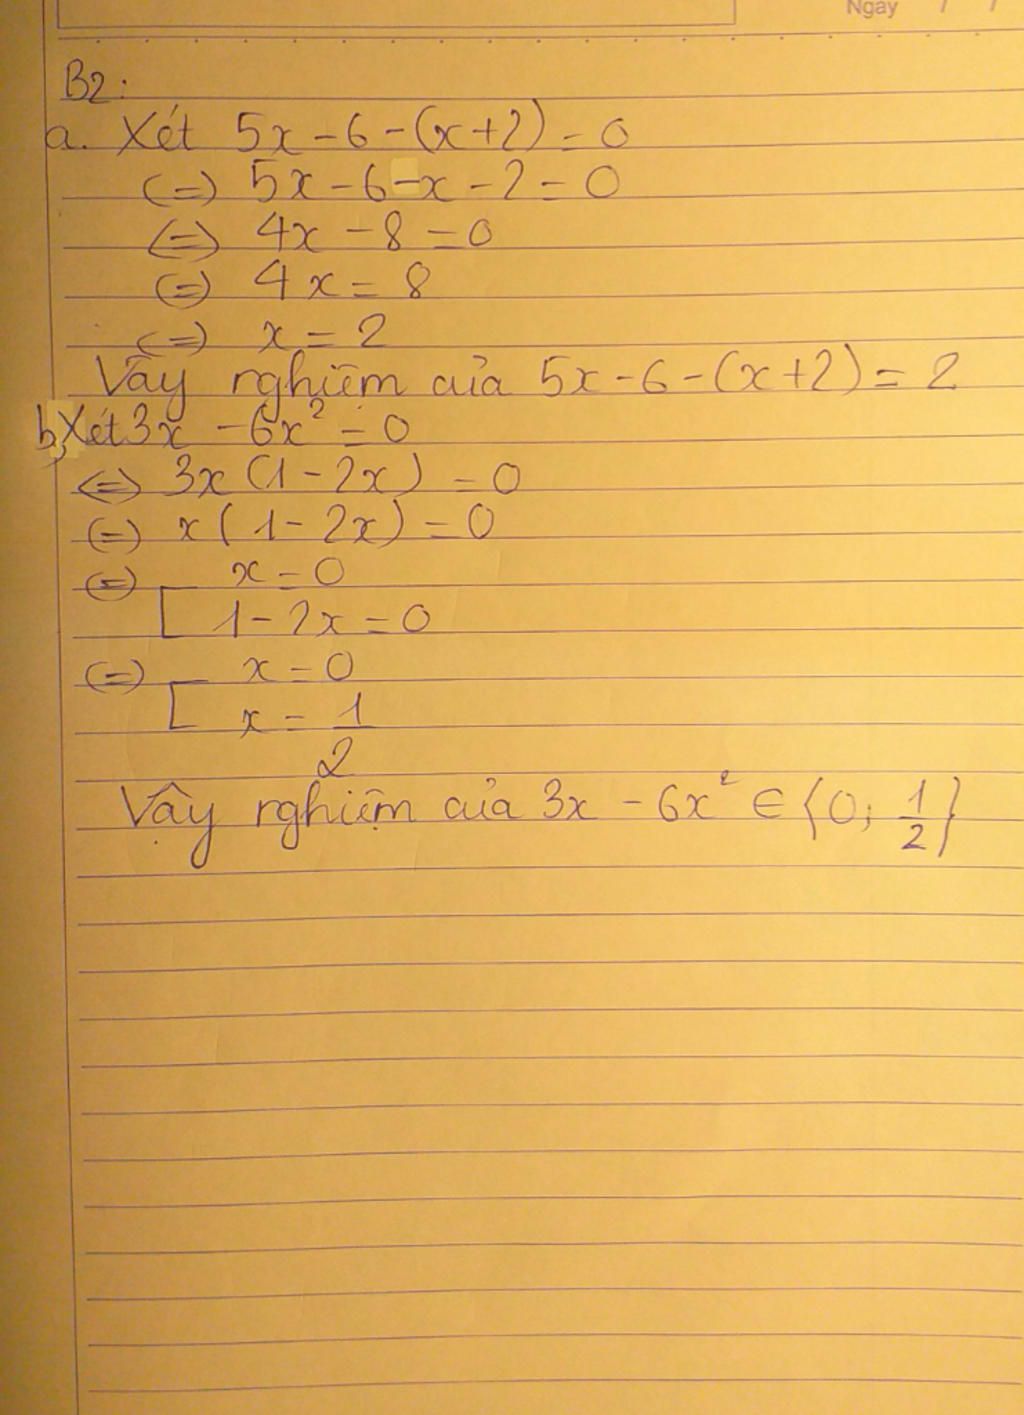 Ngày / /
B2:
a. Xét 5x - 6 - (x + 2) = 0
(=) 5x - 6 - x - 2 = 0
(=) 4x - 8 = 0
(=) 4x = 8
(=) x = 2
Vậy nghiệm của 5x - 6 - (x + 2) = 2
b, Xét 3x - 6x² = 0
(=) 3x (1 - 2x) = 0
(=) x (1 - 2x) = 0
(=) [ x = 0
1 - 2x = 0
(=) [ x = 0
x = 1/2
Vậy nghiệm của 3x - 6x² ∈ {0; 1/2}